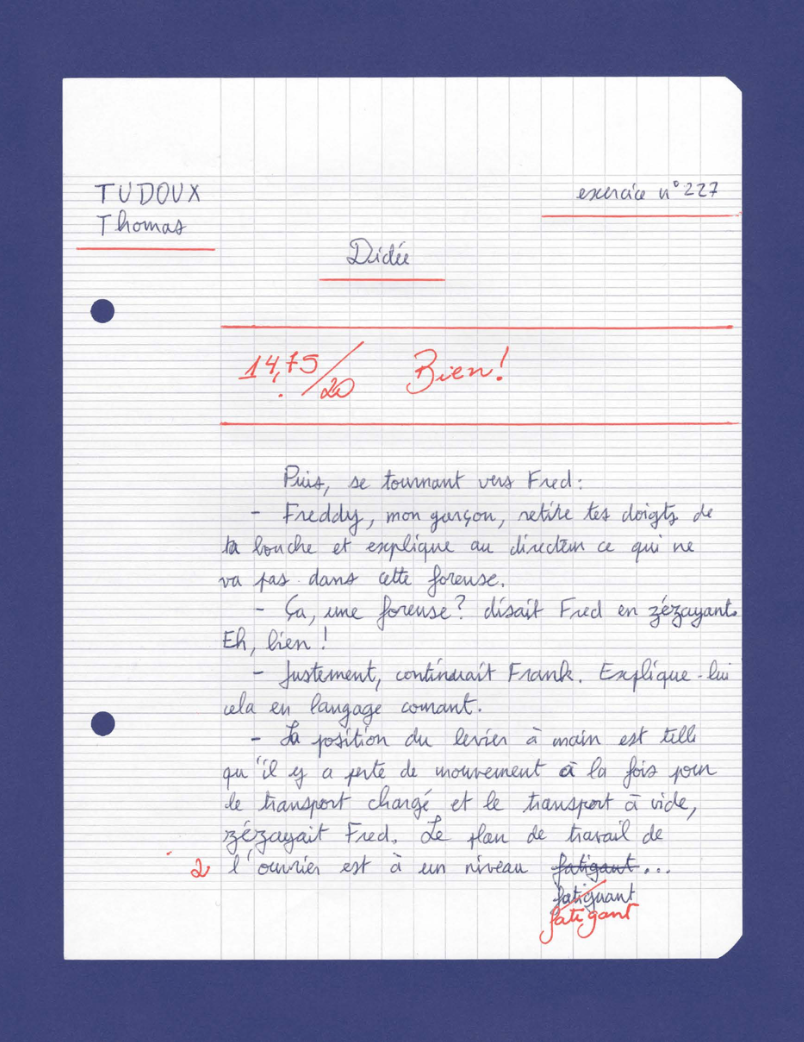 TUDOUX
Thomas
exercice n°227
Dictée
14,75/20 Bien!
Puis, se tournant vers Fred:
- Freddy, mon garçon, retire tes doigts de
ta bouche et explique au directeur ce qui ne
va pas dans cette foreuse.
- Ça, une foreuse? disait Fred en zézayant.
Eh, bien!
- Justement, continuait Frank. Explique-lui
cela en langage courant.
- La position du levier à main est telle
qu'il y a perte de mouvement à la fois pour
le transport chargé et le transport à vide,
zézayait Fred. Le plan de travail de
2 l'ouvrier est à un niveau fatigant...
fatiguant
fatigant